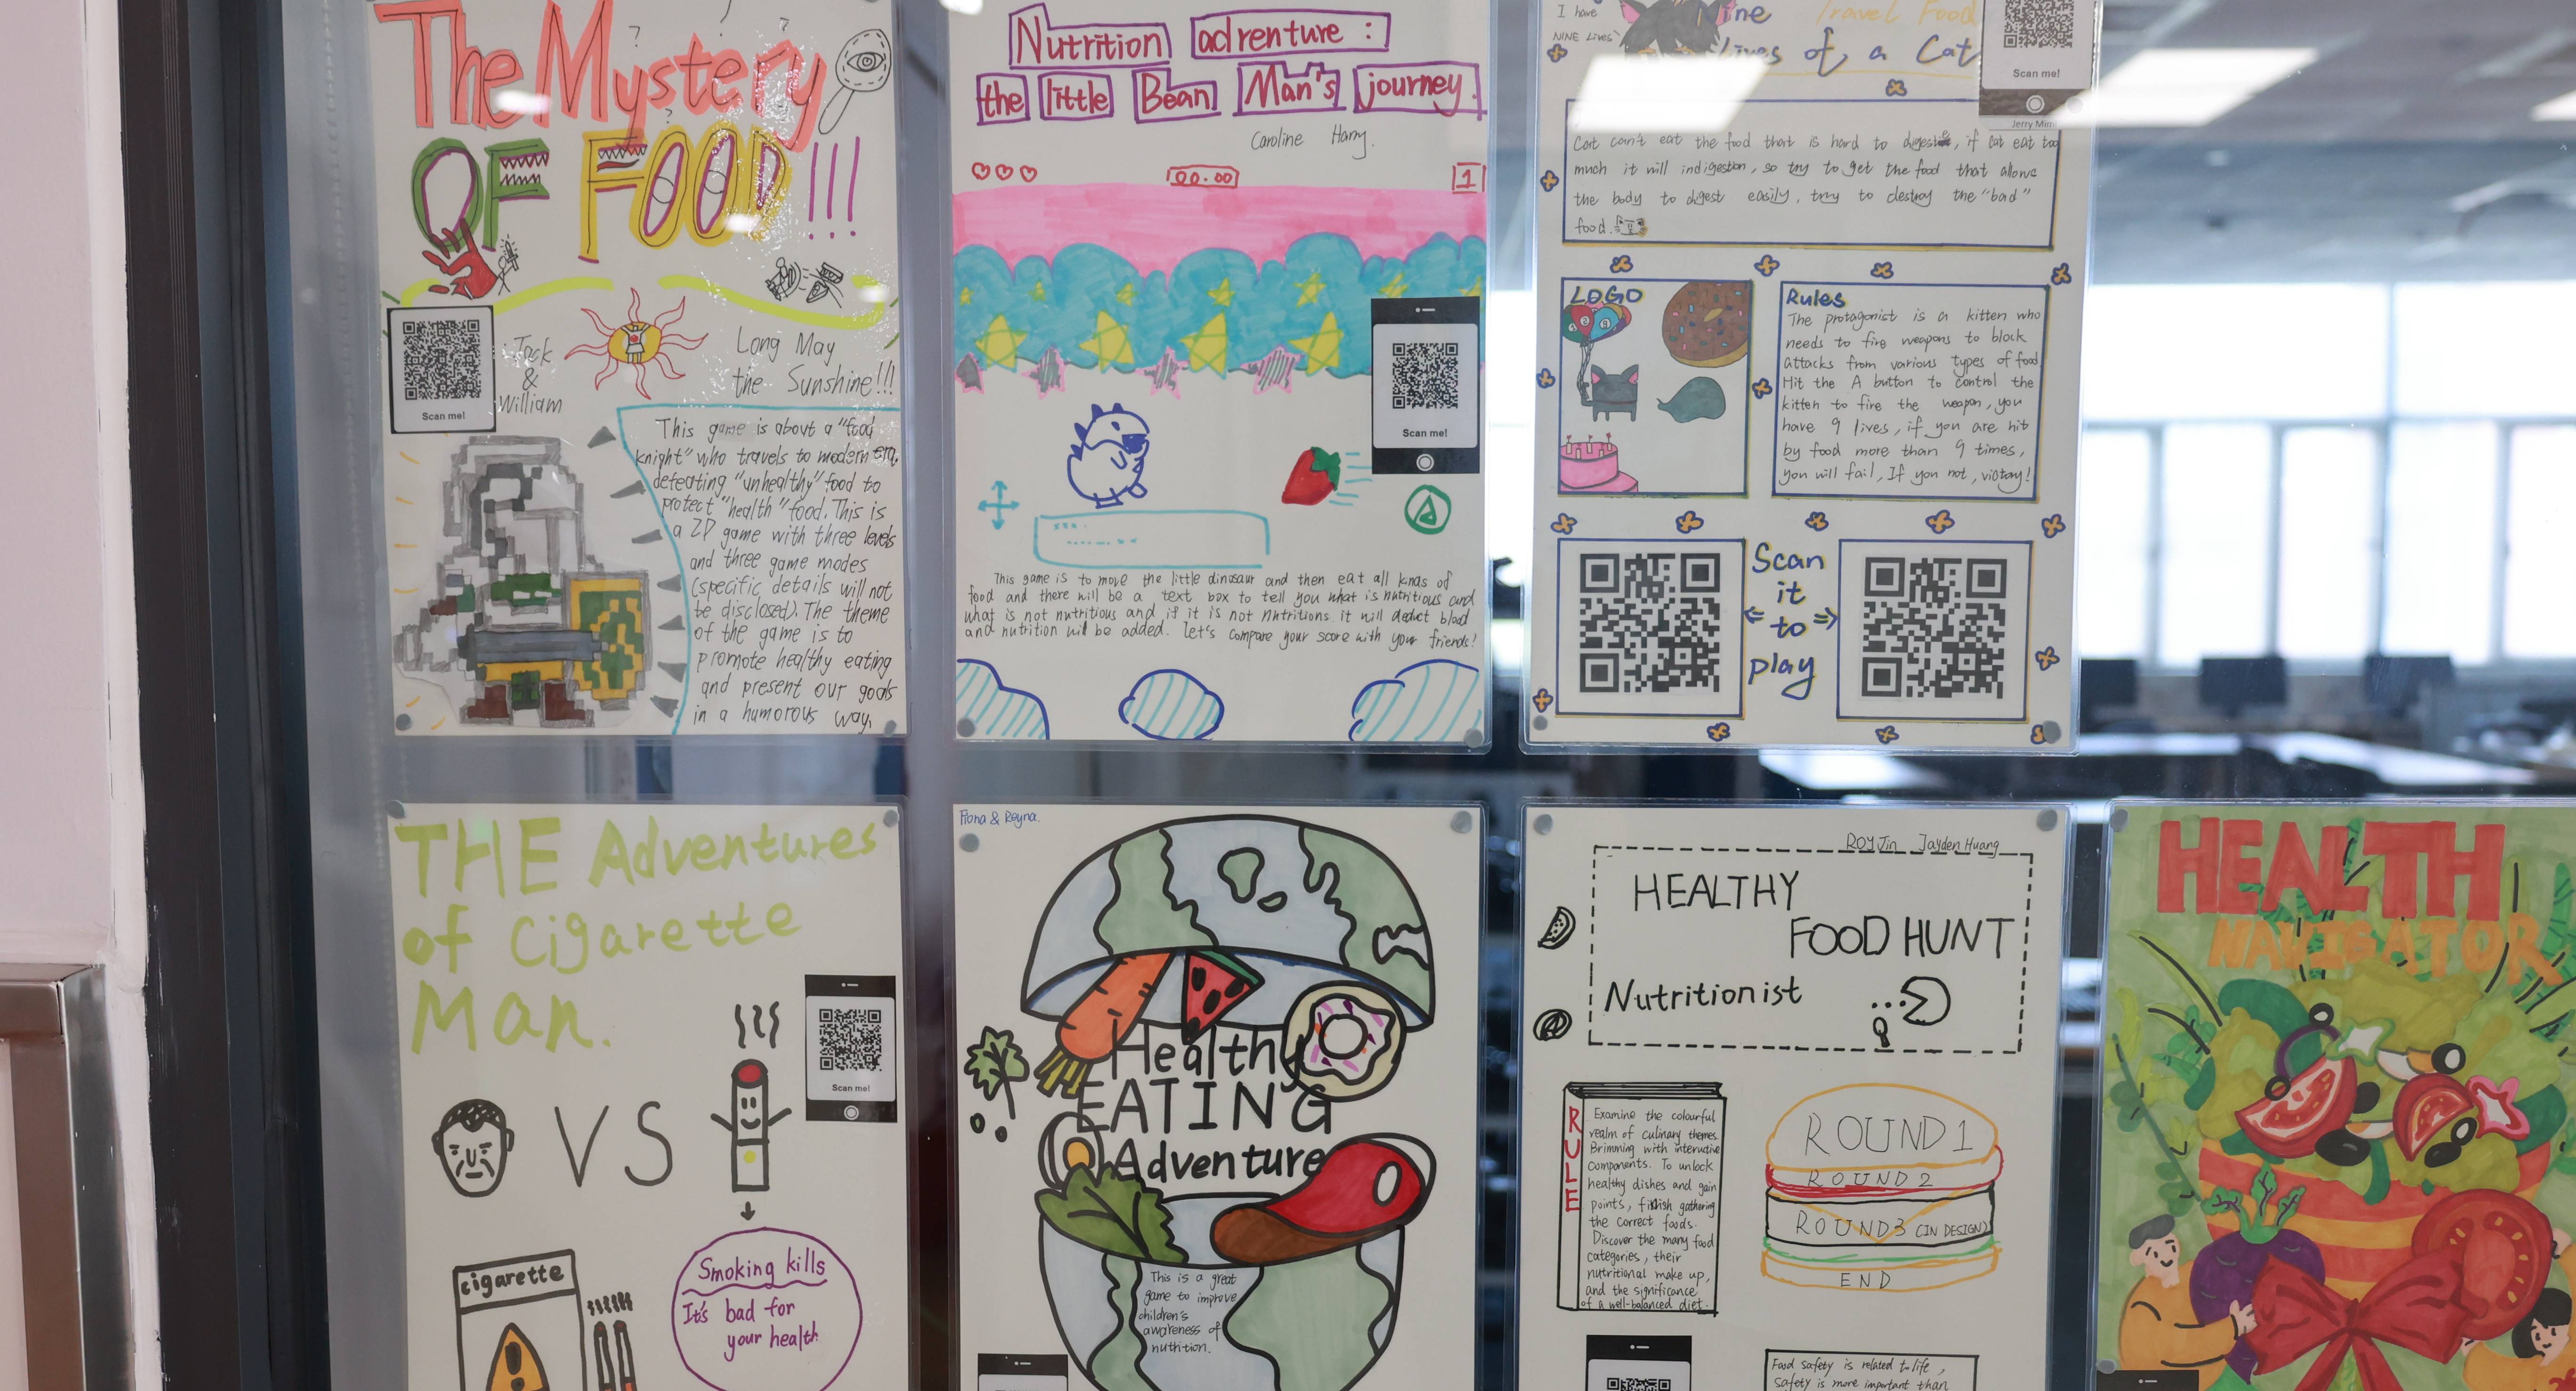 The Mystery
OF FOOD!!!
Jack
&
William
Long May
the Sunshine!!!
Scan me!
This game is about a "food
knight" who travels to modern era,
defeating "unhealthy" food to
protect "health" food. This is
a 2D game with three levels
and three game modes
(specific details will not
be disclosed). The theme
of the game is to
promote healthy eating
and present our goals
in a humorous way,
Nutrition adrenture :
the little Bean Man's journey.
Caroline Harry.
00:00
1
Scan me!
A
This game is to move the little dinosaur and then eat all kinds of
food and there will be a text box to tell you what is nutritious and
what is not nutritious and if it is not nutritions it will deduct blood
and nutrition will be added. let's compare your score with your friends!
I have
NINE Lives
Travel Food
lives of a Cat
Scan me!
Jerry Mimi
Cat can't eat the food that is hard to digest, if cat eat too
much it will indigestion, so try to get the food that allows
the body to digest easily, try to destroy the "bad"
food.
LOGO
Rules
The protagonist is a kitten who
needs to fire weapons to block
attacks from various types of food
Hit the A button to control the
kitten to fire the weapon, you
have 9 lives, if you are hit
by food more than 9 times,
you will fail, If you not, victory!
Scan
it
to
play
THE Adventures
of Cigarette
Man.
Scan me!
VS
cigarette
Smoking kills
It's bad for
your health
Fiona & Reyna.
Healthy
EATING
Adventure
This is a great
game to improve
children's
awareness of
nutrition.
ROY Jin Jayden Huang
HEALTHY
FOOD HUNT
Nutritionist
RULE
Examine the colourful
realm of culinary themes
Brimming with interactive
components. To unlock
healthy dishes and gain
points, finish gathering
the correct foods.
Discover the many food
categories, their
nutritional make up,
and the significance
of a well-balanced diet.
ROUND 1
ROUND 2
ROUND 3 (IN DESIGN)
END
Food safety is related to life,
safety is more important than
HEALTH
NAVIGATOR